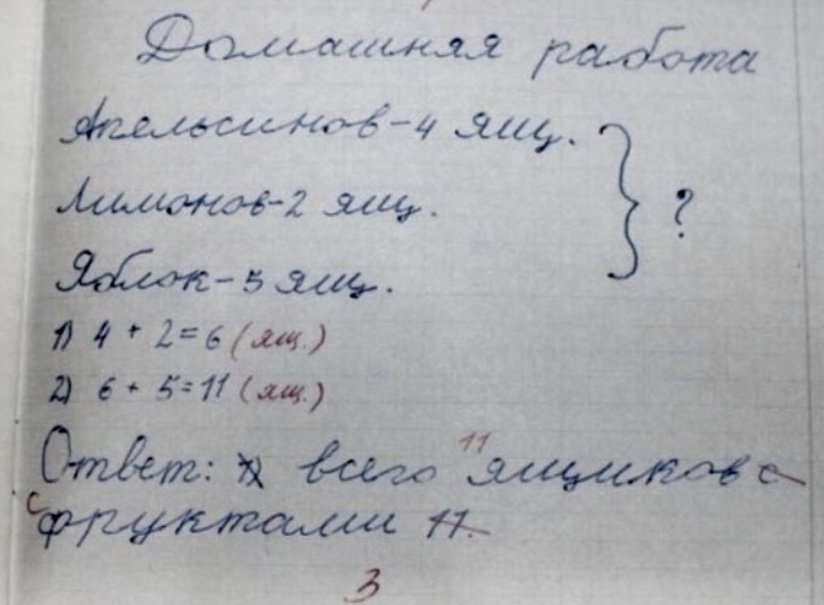 Домашняя работа
Апельсинов-4 ящ.
Лимонов-2 ящ. } ?
Яблок-5 ящ.
1) 4 + 2=6 (ящ.)
2) 6 + 5=11 (ящ.)
11
Ответ: всего ящиков с
с фруктами 11.
3